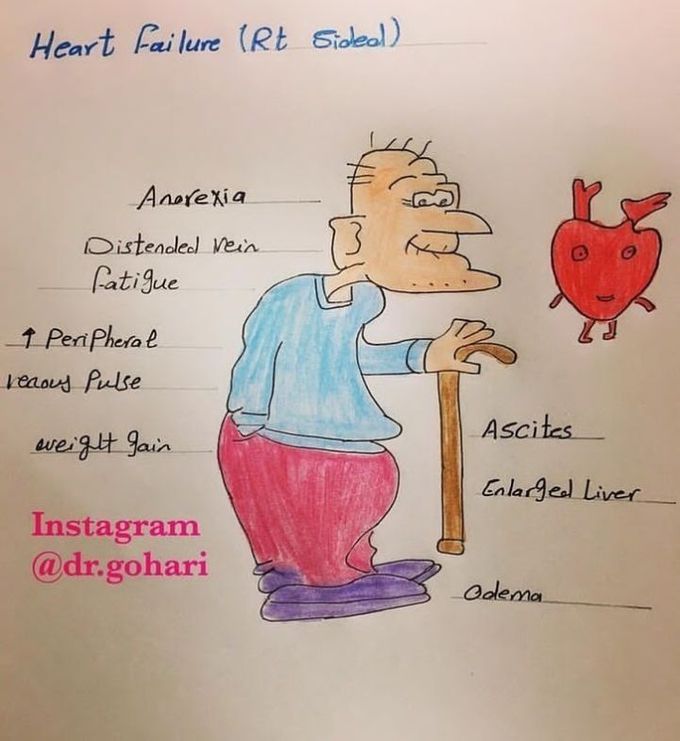 Heart Failure (Rt Sided)
Anorexia
Distended Vein
Fatigue
↑ Peripheral
venous Pulse
weight gain
Ascites
Enlarged Liver
Odema
Instagram
@dr.gohari